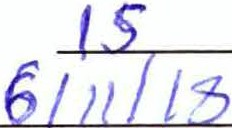 15
6/11/18